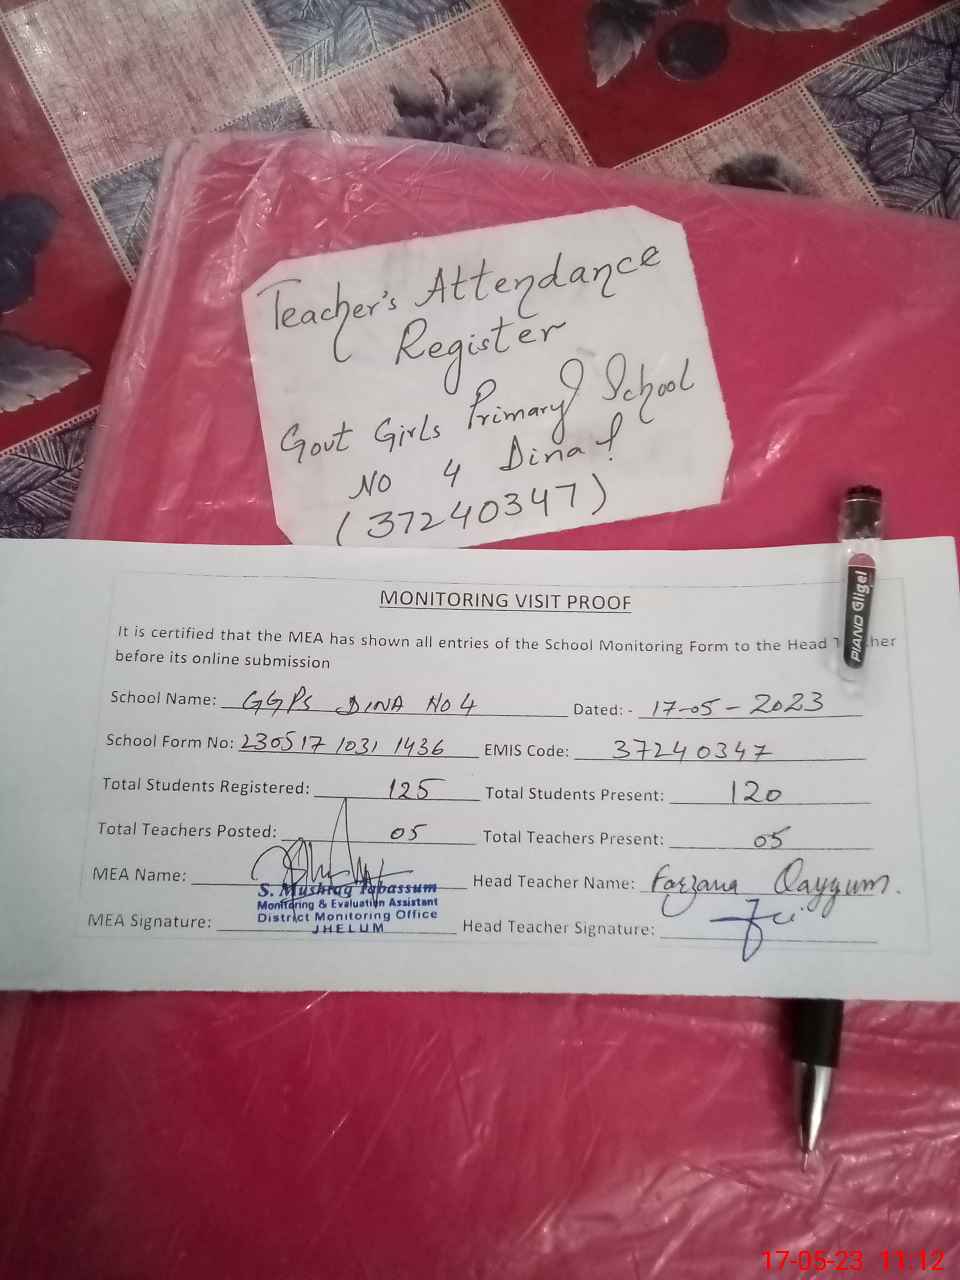 Teacher's Attendance
Register
Govt Girls Primary School
No 4 Dina !
(37240347)
PIANO Gligel
MONITORING VISIT PROOF
It is certified that the MEA has shown all entries of the School Monitoring Form to the Head T cher
before its online submission
School Name: GGPS DINA No 4 Dated: - 17-05-2023
School Form No: 230517 1031 1436 EMIS Code: 37240347
Total Students Registered: 125 Total Students Present: 120
Total Teachers Posted: 05 Total Teachers Present: 05
MEA Name: Head Teacher Name: Farzana Qayyum.
S. Mushtaq Tabassum
Monitoring & Evaluation Assistant
District Monitoring Office
JHELUM
MEA Signature: Head Teacher Signature:
17-05-23 11:12